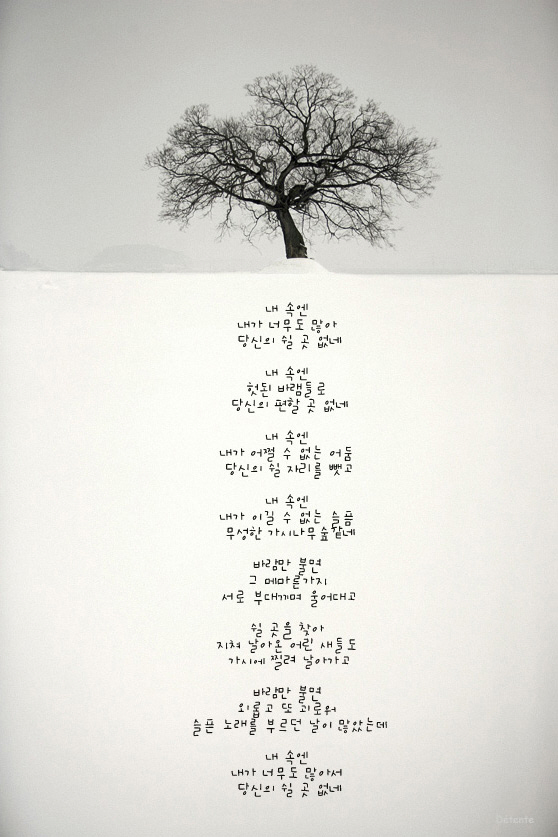 내 속엔
내가 너무도 많아
당신의 쉴 곳 없네
내 속엔
헛된 바램들로
당신의 편할 곳 없네
내 속엔
내가 어쩔 수 없는 어둠
당신의 쉴 자리를 뺏고
내 속엔
내가 이길 수 없는 슬픔
무성한 가시나무숲같네
바람만 불면
그 메마른가지
서로 부대끼며 울어대고
쉴 곳을 찾아
지쳐 날아온 어린 새들도
가시에 찔려 날아가고
바람만 불면
외롭고 또 괴로워
슬픈 노래를 부르던 날이 많았는데
내 속엔
내가 너무도 많아서
당신의 쉴 곳 없네
Detente